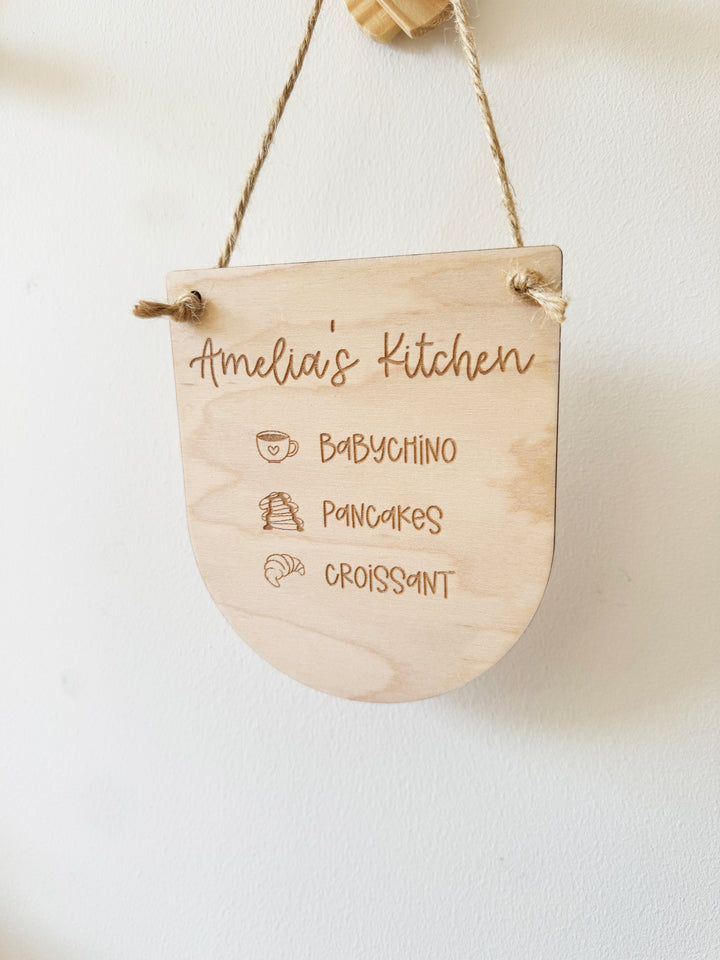 Amelia's Kitchen
BaBYCHiNO
PaNCaKeS
CROiSSaNT